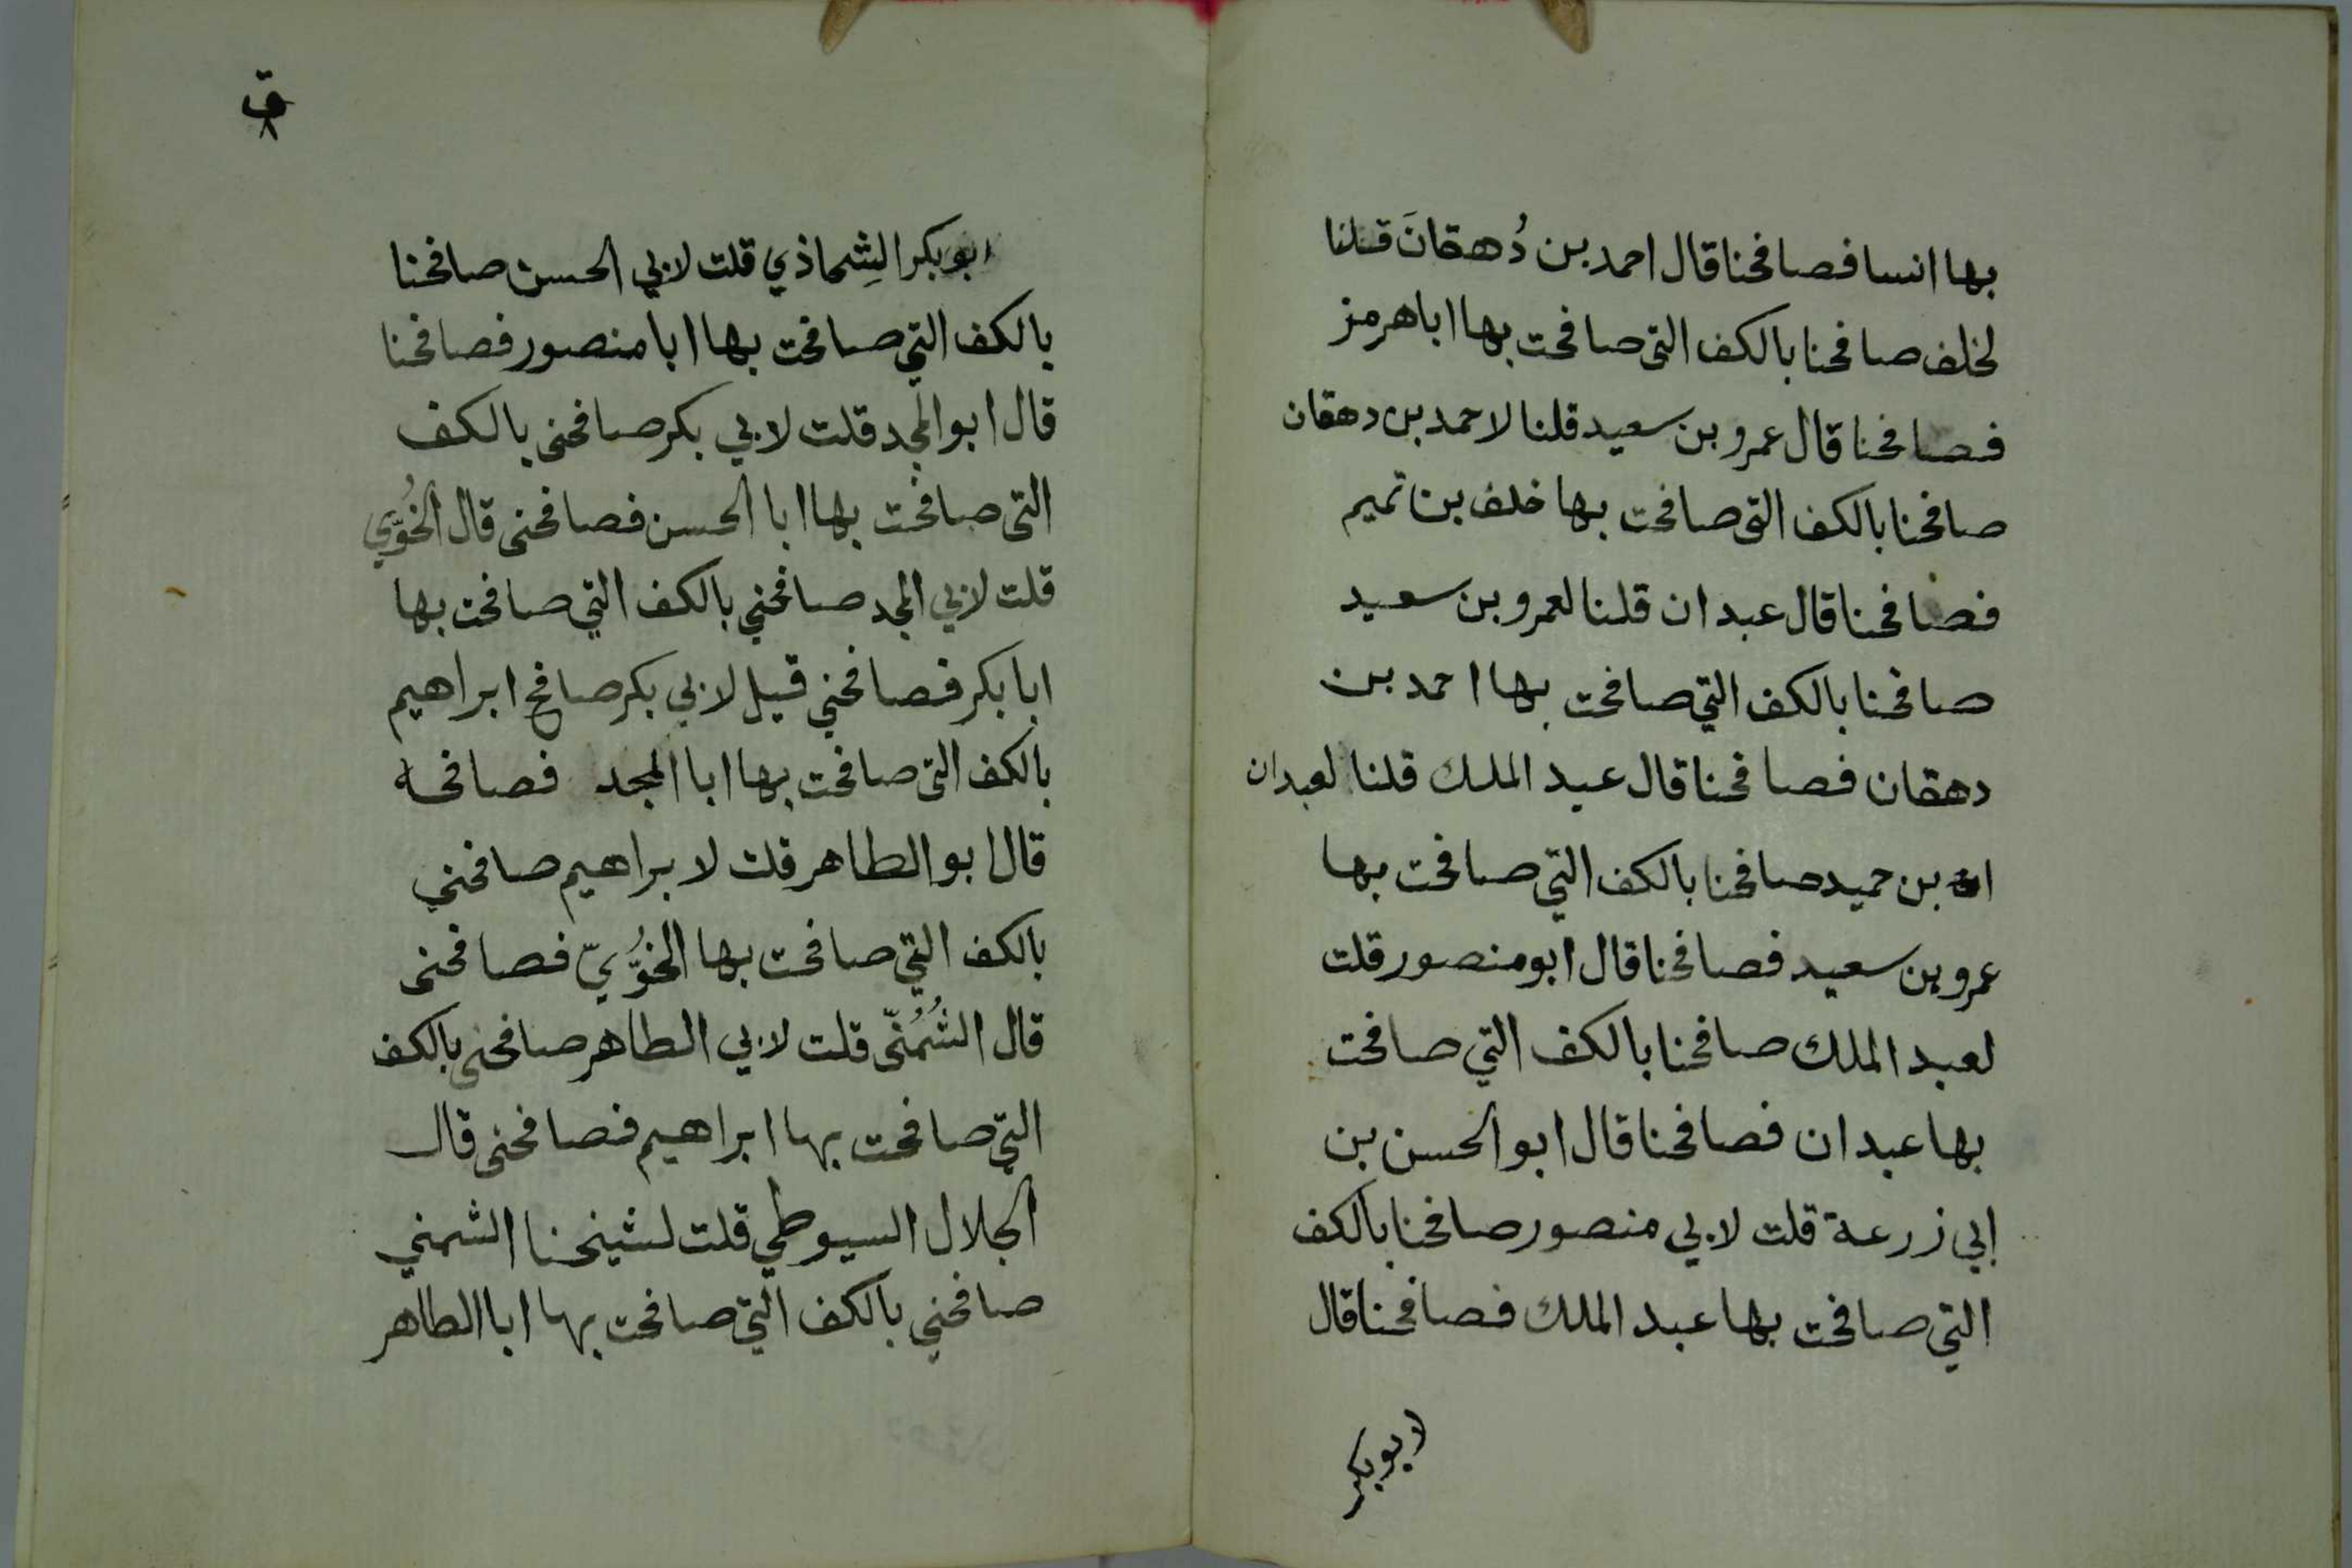 بها انسا فصافحنا قال احمد بن دُهقانَ قلنا
لخلف صافحنا بالكف التى صافحت بها ابا هرمز
فصافحنا قال عمرو بن سعيد قلنا لاحمد بن دهقان
صافحنا بالكف التى صافحت بها خلف بن تميم
فصافحنا قال عبدان قلنا لعمرو بن سعيد
صافحنا بالكف التي صافحت بها احمد بن
دهقان فصافحنا قال عبد الملك قلنا لعبدان
بن حميد صافحنا بالكف التي صافحت بها
عمرو بن سعيد فصافحنا قال ابو منصور قلت
لعبد الملك صافحنا بالكف التي صافحت
بها عبدان فصافحنا قال ابو الحسن بن
ابي زرعة قلت لابي منصور صافحنا بالكف
التي صافحت بها عبد الملك فصافحنا قال
ابو بكر
ق
٨
ابو بكر الشِحاذي قلت لابي الحسن صافحنا
بالكف التي صافحت بها ابا منصور فصافحنا
قال ابو المجد قلت لابي بكر صافحنى بالكف
التى صافحت بها ابا الحسن فصافحنى قال الخُوَّيي
قلت لابي المجد صافحني بالكف التي صافحت بها
ابا بكر فصافحني قيل لابي بكر صافح ابراهيم
بالكف التى صافحت بها ابا المجد فصافحه
قال ابو الطاهر قلت لابراهيم صافحني
بالكف التي صافحت بها الخُوَّيّ فصافحنى
قال الشُمُنّى قلت لابي الطاهر صافحنى بالكف
التي صافحت بها ابراهيم فصافحنى قال
الجلال السيوطي قلت لشيخنا الشمني
صافحني بالكف التي صافحت بها ابا الطاهر